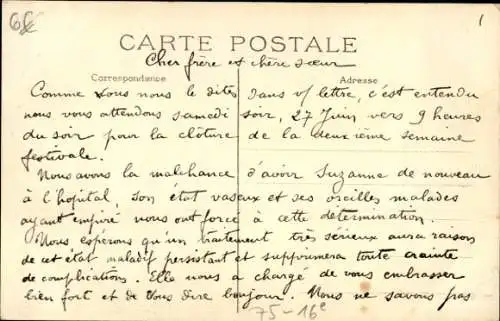 65
1
CARTE POSTALE
Cher frère et chère sœur
Correspondance
Adresse
Comme vous nous le dites dans v/ lettre, c'est entendu
nous vous attendons samedi soir, 27 Juin vers 9 heures
du soir pour la clôture de la deuxième semaine
festivale.
Nous avons la malchance d'avoir Suzanne de nouveau
à l'hopital, son état vaseux et ses oreilles malades
ayant empiré nous ont forcé à cette détermination.
Nous espérons qu'un traitement très sérieux aura raison
de cet état maladif persistant et supprimera toute crainte
de complications. Elle nous a chargé de vous embrasser
bien fort et de vous dire bonjour. Nous ne savons pas
75-16e